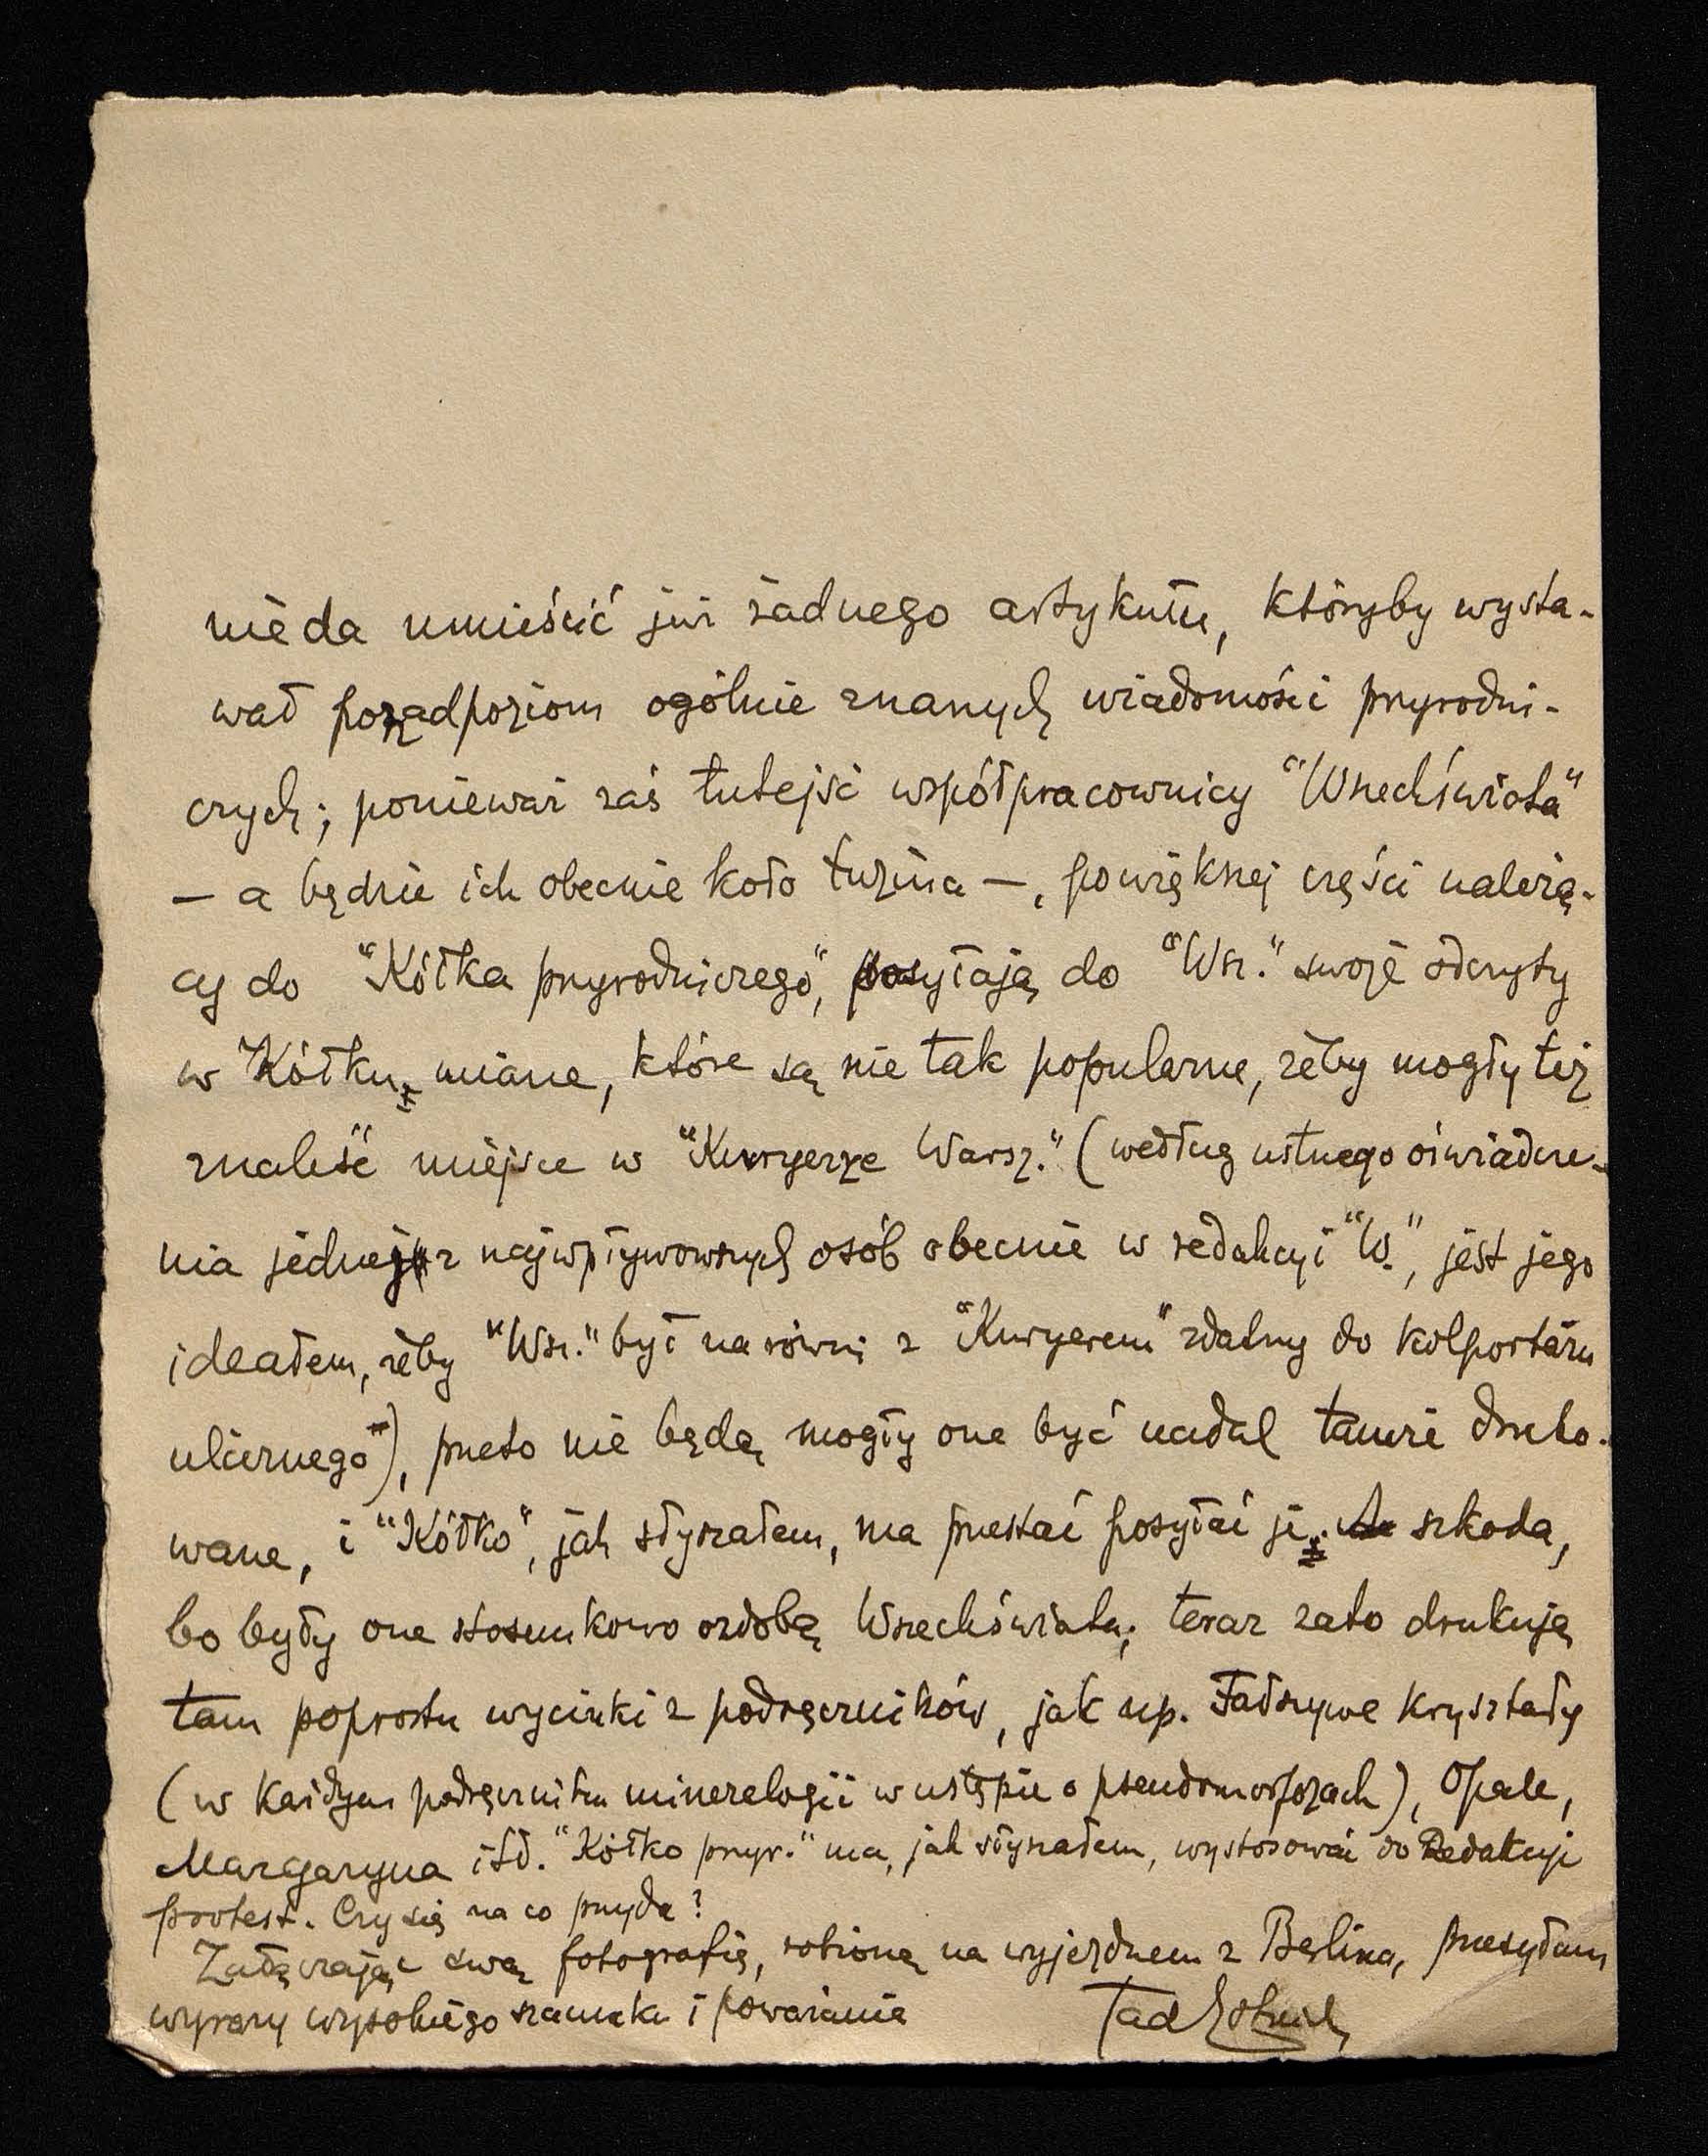 nie da umieścić już żadnego artykułu, któryby wysta-
wał pozadpoziom ogólnie znanych wiadomości przyrodni-
czych; ponieważ zaś tutejsi współpracownicy "Wszechświata"
— a będzie ich obecnie koło tuzina —, powiększej części należą-
cy do "Kółka przyrodniczego", posyłają do "Wsz." swoje odczyty
w Kółku miane, które są nie tak popularne, żeby mogły też
znaleść miejsce w "Kuryerze Warsz." (według ustnego oświadcze-
nia jednej z najwpływowszych osób obecnie w redakcyi "W.", jest jego
ideałem, żeby "Wsz." był narówni z "Kuryerem" zdatny do kolportażu
ulicznego), przeto nie będą mogły one być nadal tamże druko-
wane, i "Kółko", jak słyszałem, ma przestać posyłać je. szkoda,
bo były one stosunkowo ozdobą Wszechświata; teraz zato drukują
tam poprostu wycinki z podręczników, jak np. Fałszywe kryształy
(w każdym podręczniku mineralogii w ustępie o pseudomorfozach), Opale,
Margaryna itd. "Kółko przyr." ma, jak słyszałem, wystosować do Redakcyi
protest. Czy się na co przyda?
Załączając swą fotografię, robioną na wyjezdnem z Berlina, przesyłam
wyrazy wysokiego szacunku i poważania Tad Estreich